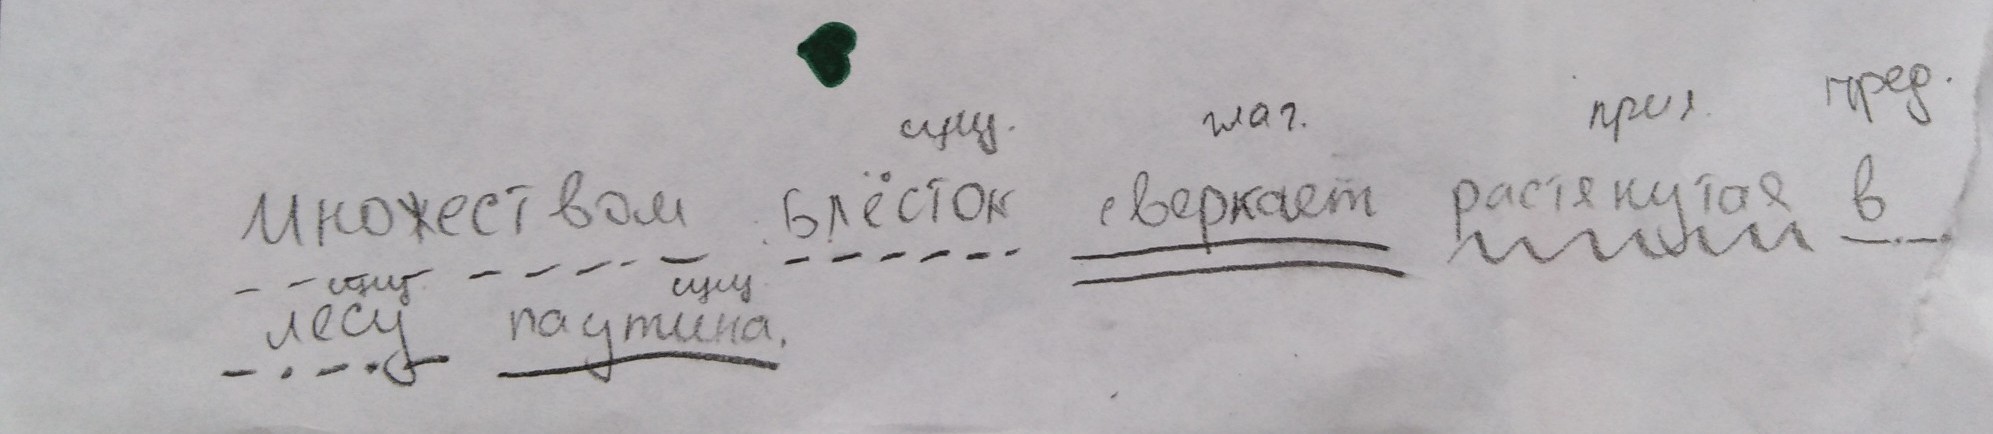 сущ. глаг. прил. пред.
Множеством блёсток сверкает растянутая в
сущ. сущ.
лесу паутина.